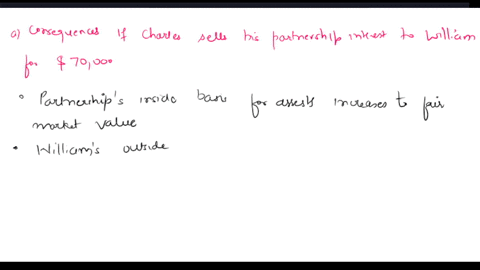 a) Consequences if Charles sells his partnership interest to William
for $ 70,000
• Partnership's inside basis for assests increases to fair
market value
• William's outside